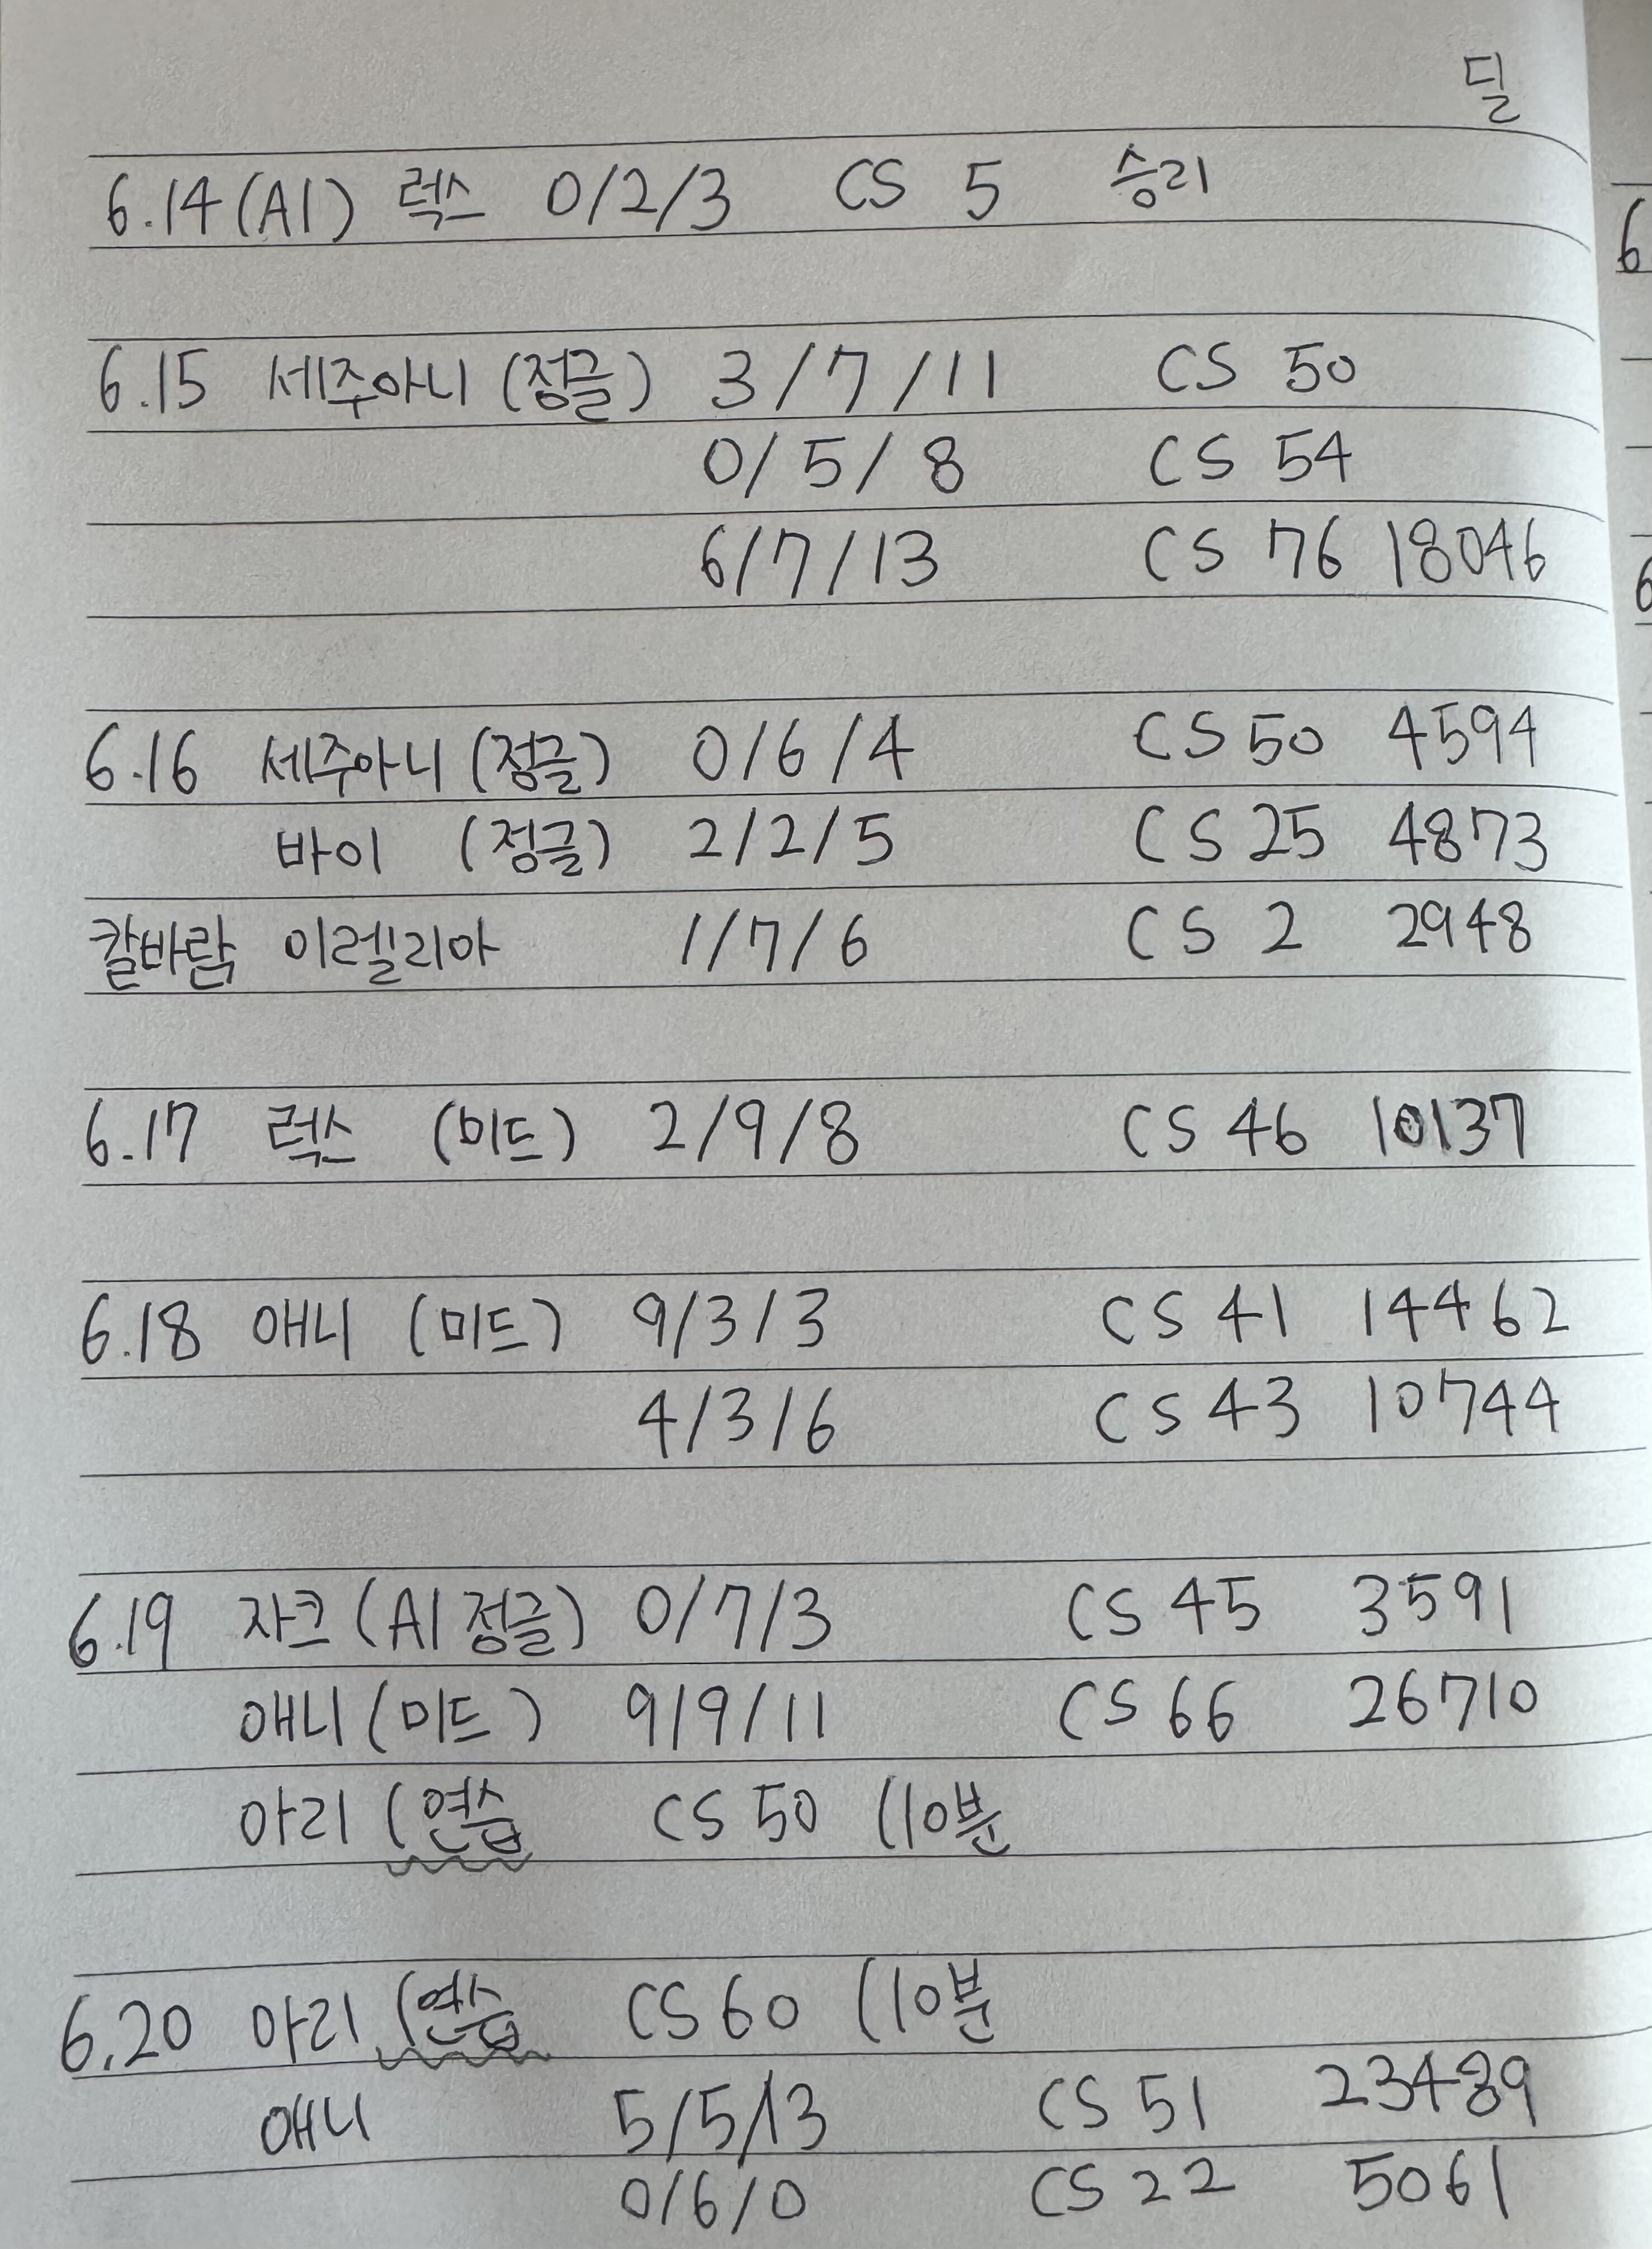 딜
6.14(AI) 럭스 0/2/3 CS 5 승리
6
6.15 세주아니 (정글) 3/7/11 CS 50
0/5/8 CS 54
6/7/13 CS 76 18046
6
6.16 세주아니 (정글) 0/6/4 CS 50 4594
바이 (정글) 2/2/5 CS 25 4873
칼바람 이렐리아 1/7/6 CS 2 2948
6.17 럭스 (미드) 2/9/8 CS 46 10137
6.18 애니 (미드) 9/3/3 CS 41 14462
4/3/6 CS 43 10744
6.19 자크 (AI 정글) 0/7/3 CS 45 3591
애니 (미드) 9/9/11 CS 66 26710
아리 (연습 CS 50 (10분
6.20 아리 (연습 CS 60 (10분
애니 5/5/13 CS 51 23489
0/6/0 CS 22 5061